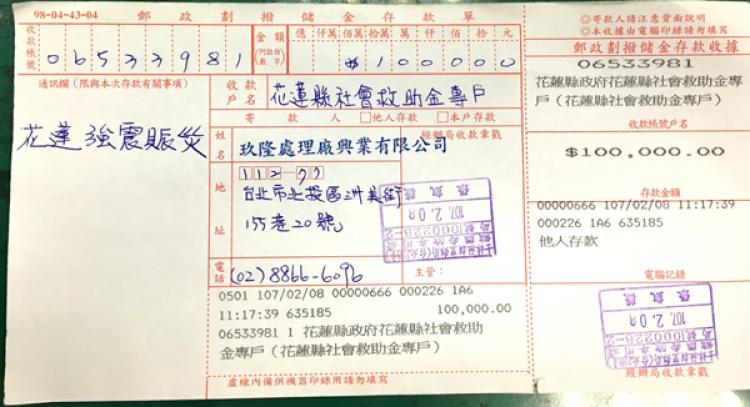 98-04-43-04 郵政劃撥儲金存款單
收款帳號 06533981
金額(阿拉伯數字) 億 仟萬 佰萬 拾萬 萬 仟 佰 拾 元
$100000
通訊欄(限與本次存款有關事項)
花蓮強震賑災
收款戶名 花蓮縣社會救助金專戶
寄款人 □他人存款 □本戶存款
姓名 玖隆處理廠興業有限公司
經辦局收款章戳
地址 112-
台北市北投區洲美街
155巷20號
電話 (02)8866-6096
主管:
0501 107/02/08 00000666 000226 1A6
11:17:39 635185 100,000.00
06533981 1 花蓮縣政府花蓮縣社會救助
金專戶(花蓮縣社會救助金專戶)
虛線內備供機器印錄用請勿填寫
◎寄款人請注意背面說明
◎本收據由電腦印錄請勿填寫
郵政劃撥儲金存款收據
06533981
花蓮縣政府花蓮縣社會救助金專
戶(花蓮縣社會救助金專戶)
收款帳號戶名
$100,000.00
存款金額
00000666 107/02/08 11:17:39
000226 1A6 635185
他人存款
電腦記錄
經辦局收款章戳